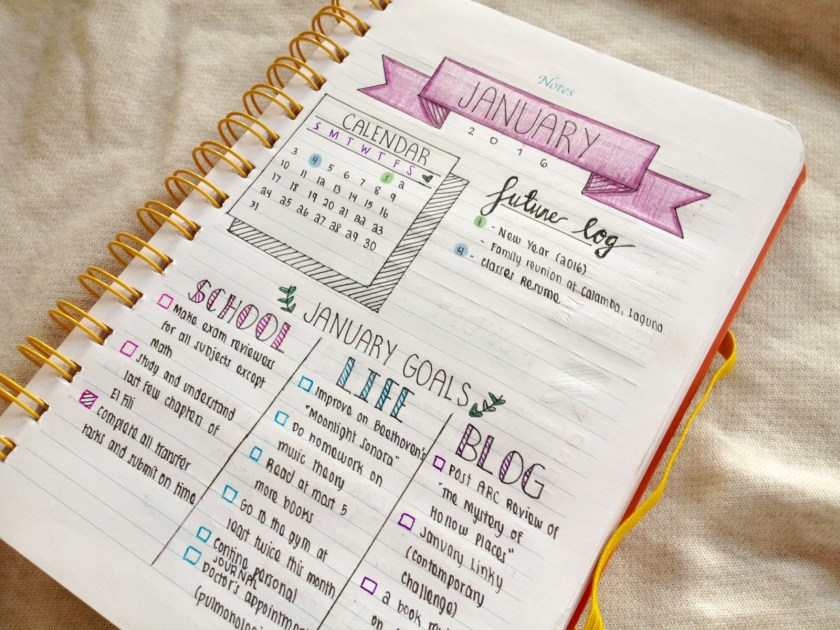 Notes
JANUARY
2016
CALENDAR
S M T W T F S
1 2
3 4 5 6 7 8 9
10 11 12 13 14 15 16
17 18 19 20 21 22 23
24 25 26 27 28 29 30
31
future log
1 - New Year (2016)
- Family reunion at Calamba, Laguna
4 - Classes Resume
JANUARY GOALS
SCHOOL
Make exam reviewers
for all subjects except
math
Study and understand
last few chapters of
El Fili
Complete all transfer
tasks and submit on time
LIFE
Improve on Beethoven's
"Moonlight Sonata"
Do homework on
music theory
Read at most 5
more books
Go to the gym at
least twice this month
Contine personal
JOURNAL
Doctor's appointment
BLOG
Post ARC Review of
"The Mystery of
Hollow Places"
January Linky
(Contemporary
Challenge)
a book
on